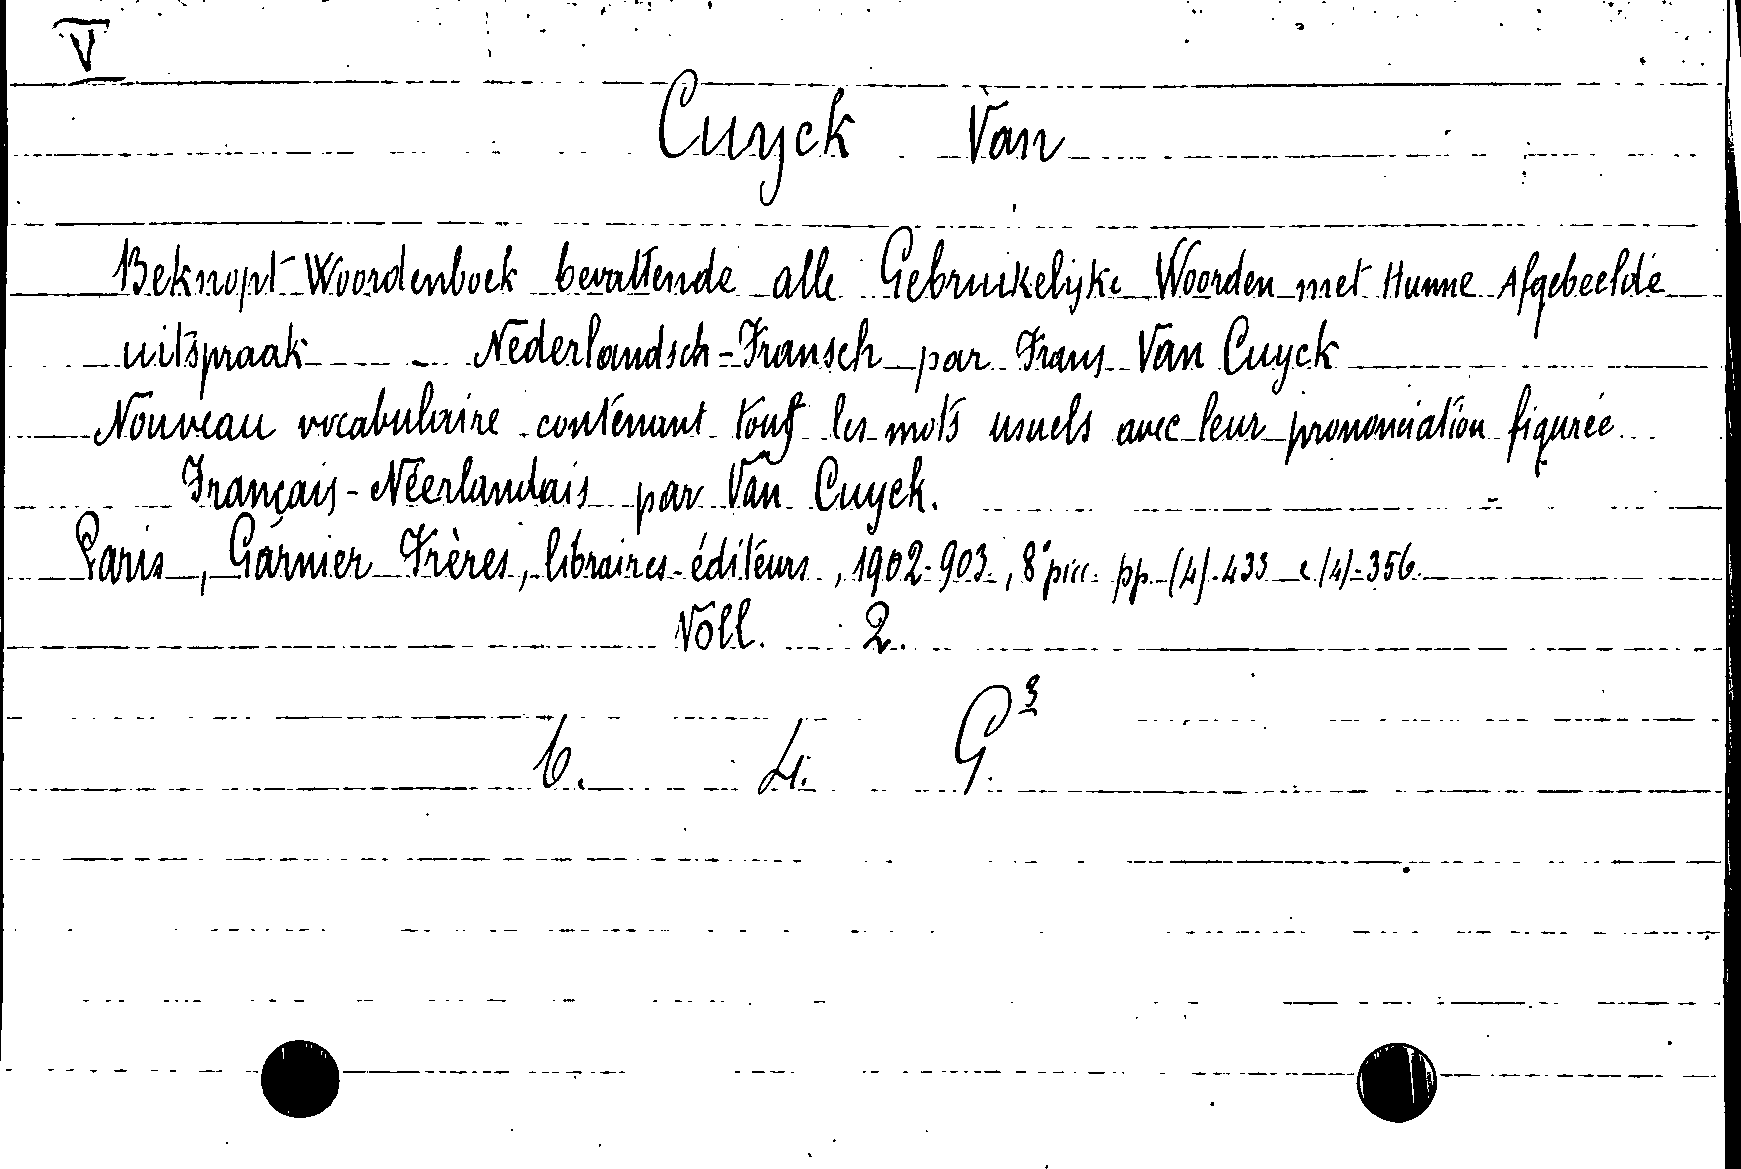 V
Cuyck Van
Beknopt Woordenboek bevattende alle Gebruikelijke Woorden met Hunne Afgebeelde
uitspraak - Nederlandsch-Fransch par Frans Van Cuyck
Nouveau vocabulaire contenant tous les mots usuels avec leur prononciation figurée
Français-Néerlandais par Van Cuyck.
Paris, Garnier Frères, libraires-éditeurs, 1902-903., 8° picc. pp. (4)-433 e (4)-356.
Voll. 2.
6. 4. G.3